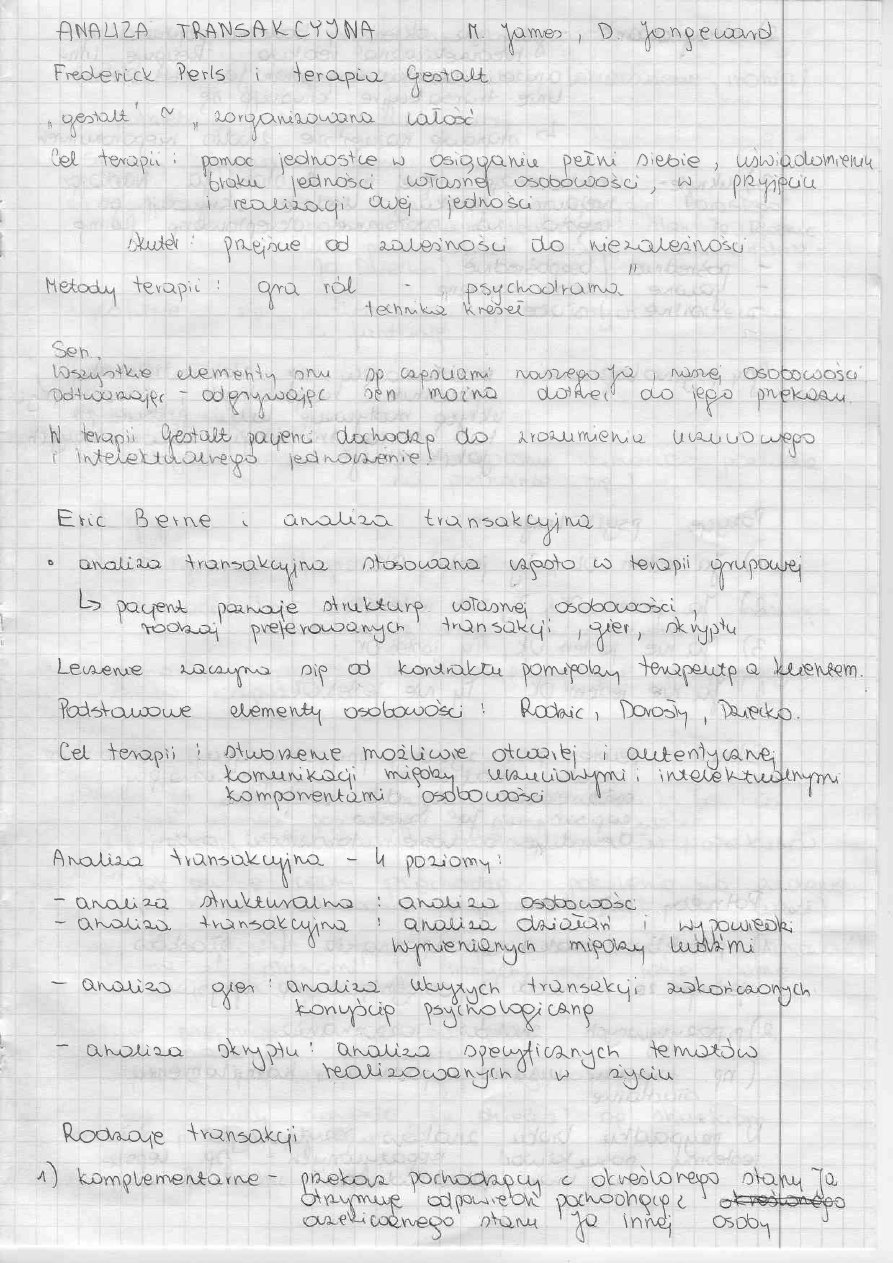 ANALIZA TRANSAKCYJNA M. James, D. Jongeward
Frederick Perls i terapia Gestalt
„gestalt" ~ „zorganizowana całość
Cel terapii: pomoc jednostce w osiąganiu pełni siebie, uświadomieniu
braku jedności własnej osobowości, w przyjęciu
i realizacji owej jedności
skutek: przejście od zależności do niezależności
Metody terapii: gra ról - „psychodrama"
technika krzeseł
Sen.
Wszystkie elementy snu są częściami naszego Ja, naszej osobowości
Odtwarzając - odgrywając sen można dotrzeć do jego przekazu.
W terapii Gestalt pacjenci dochodzą do zrozumienia uczuciowego
i intelektualnego jednocześnie!
Eric Berne i analiza transakcyjna
• analiza transakcyjna stosowana często w terapii grupowej
↳ pacjent poznaje strukturę własnej osobowości,
rodzaj preferowanych transakcji, gier, skryptu
Leczenie zaczyna się od kontraktu pomiędzy terapeutą a klientem.
Podstawowe elementy osobowości: Rodzic, Dorosły, Dziecko.
Cel terapii: stworzenie możliwie otwartej i autentycznej
komunikacji między uczuciowymi i intelektualnymi
komponentami osobowości
Analiza transakcyjna - 4 poziomy:
- analiza strukturalna: analiza osobowości
- analiza transakcyjna: analiza działań i wypowiedzi
wymienianych między ludźmi
- analiza gier: analiza ukrytych transakcji zakończonych
korzyścią psychologiczną
- analiza skryptu: analiza specyficznych tematów
realizowanych w życiu
Rodzaje transakcji
1) komplementarne - przekaz pochodzący z określonego stanu Ja
otrzymuje odpowiedź pochodzącą z określonego
oczekiwanego stanu Ja innej osoby